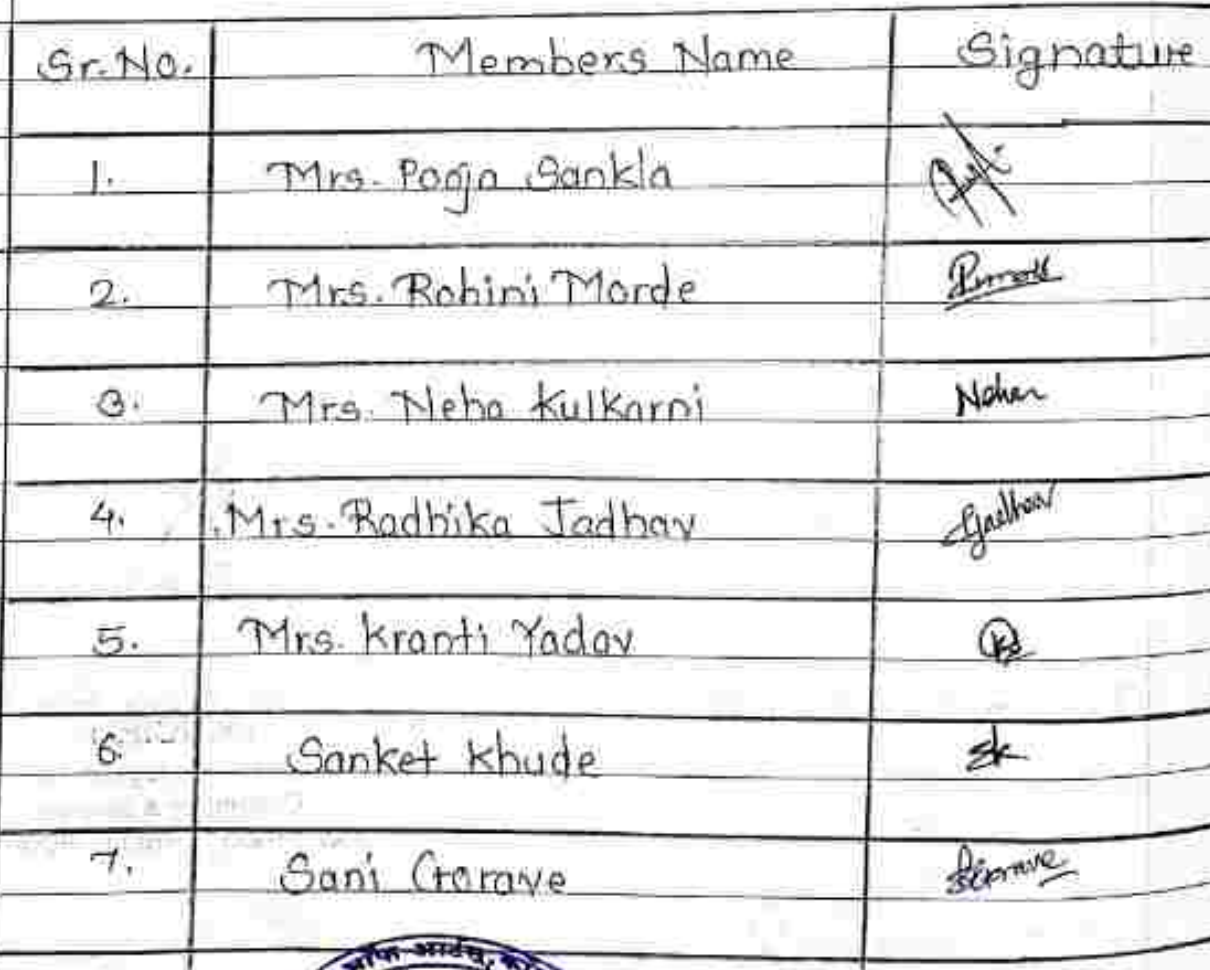 Sr.No. Members Name Signature
1. Mrs. Pooja Sankla
2. Mrs. Rohini Morde
3. Mrs. Neha Kulkarni Neha
4. Mrs. Radhika Jadhav Jadhav
5. Mrs. Kranti Yadav
6. Sanket Khude SK
7. Sani Gorave
ऑफ आर्टस्,